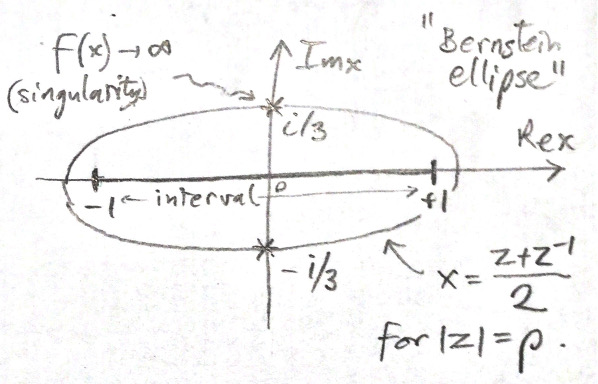 f(x) → ∞
(singularity)
Im x
"Bernstein
ellipse"
i/3
Re x
0
-1
← interval →
+1
-i/3
x = (z+z⁻¹)/2
for |z| = ρ.